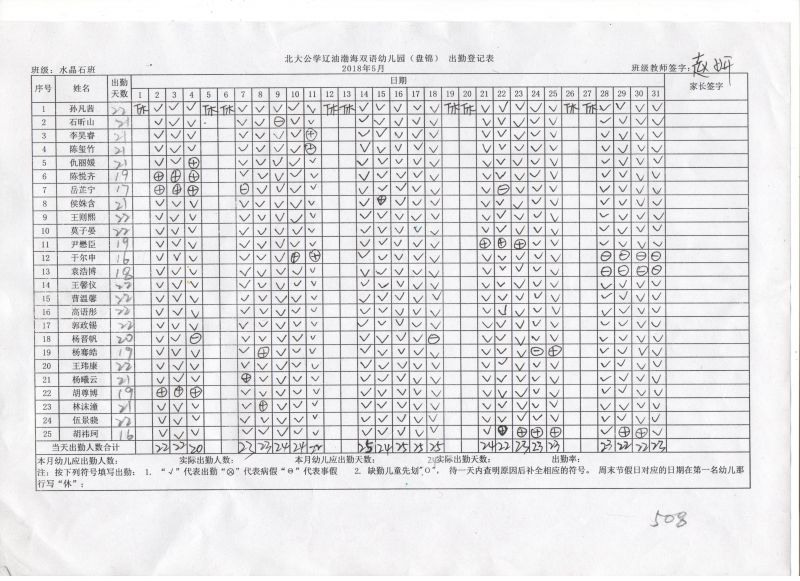 北大公学辽油渤海双语幼儿园（盘锦） 出勤登记表
班级：水晶石班 2018年5月 班级教师签字：赵妍
序号 姓名 出勤天数 日期 家长签字
1 2 3 4 5 6 7 8 9 10 11 12 13 14 15 16 17 18 19 20 21 22 23 24 25 26 27 28 29 30 31
1 孙凡茜 22 休 √ √ √ 休 休 √ √ √ √ √ 休 休 √ √ √ √ √ 休 休 √ √ √ √ √ 休 休 √ √ √ √
2 石昕山 21
3 李昊睿 21
4 陈玺竹 21
5 仇丽媛 21
6 陈悦齐 19
7 岳芷宁 17
8 侯姝含 21
9 王则熙 22
10 莫子晏 22
11 尹懋臣 19
12 于尔申 16
13 袁浩博 18
14 王馨仪 22
15 曹温馨 22
16 高语彤 22
17 郭政锡 22
18 杨晋帆 20
19 杨骞皓 19
20 王玮康 22
21 杨曦云 21
22 胡尊博 19
23 林沫潼 21
24 伍景晓 22
25 胡祎珂 16
当天出勤人数合计 22 22 20 23 23 24 24 22 25 24 25 25 25 24 22 23 23 23 23 22 22 23
本月幼儿应出勤人数： 实际出勤人数： 本月幼儿应出勤天数： 实际出勤天数： 出勤率：
注：按下列符号填写出勤： 1. “√”代表出勤“⊗”代表病假“⊖”代表事假 2. 缺勤儿童先划"○"， 待一天内查明原因后补全相应的符号。 周末节假日对应的日期在第一名幼儿那
行写“休”；
508